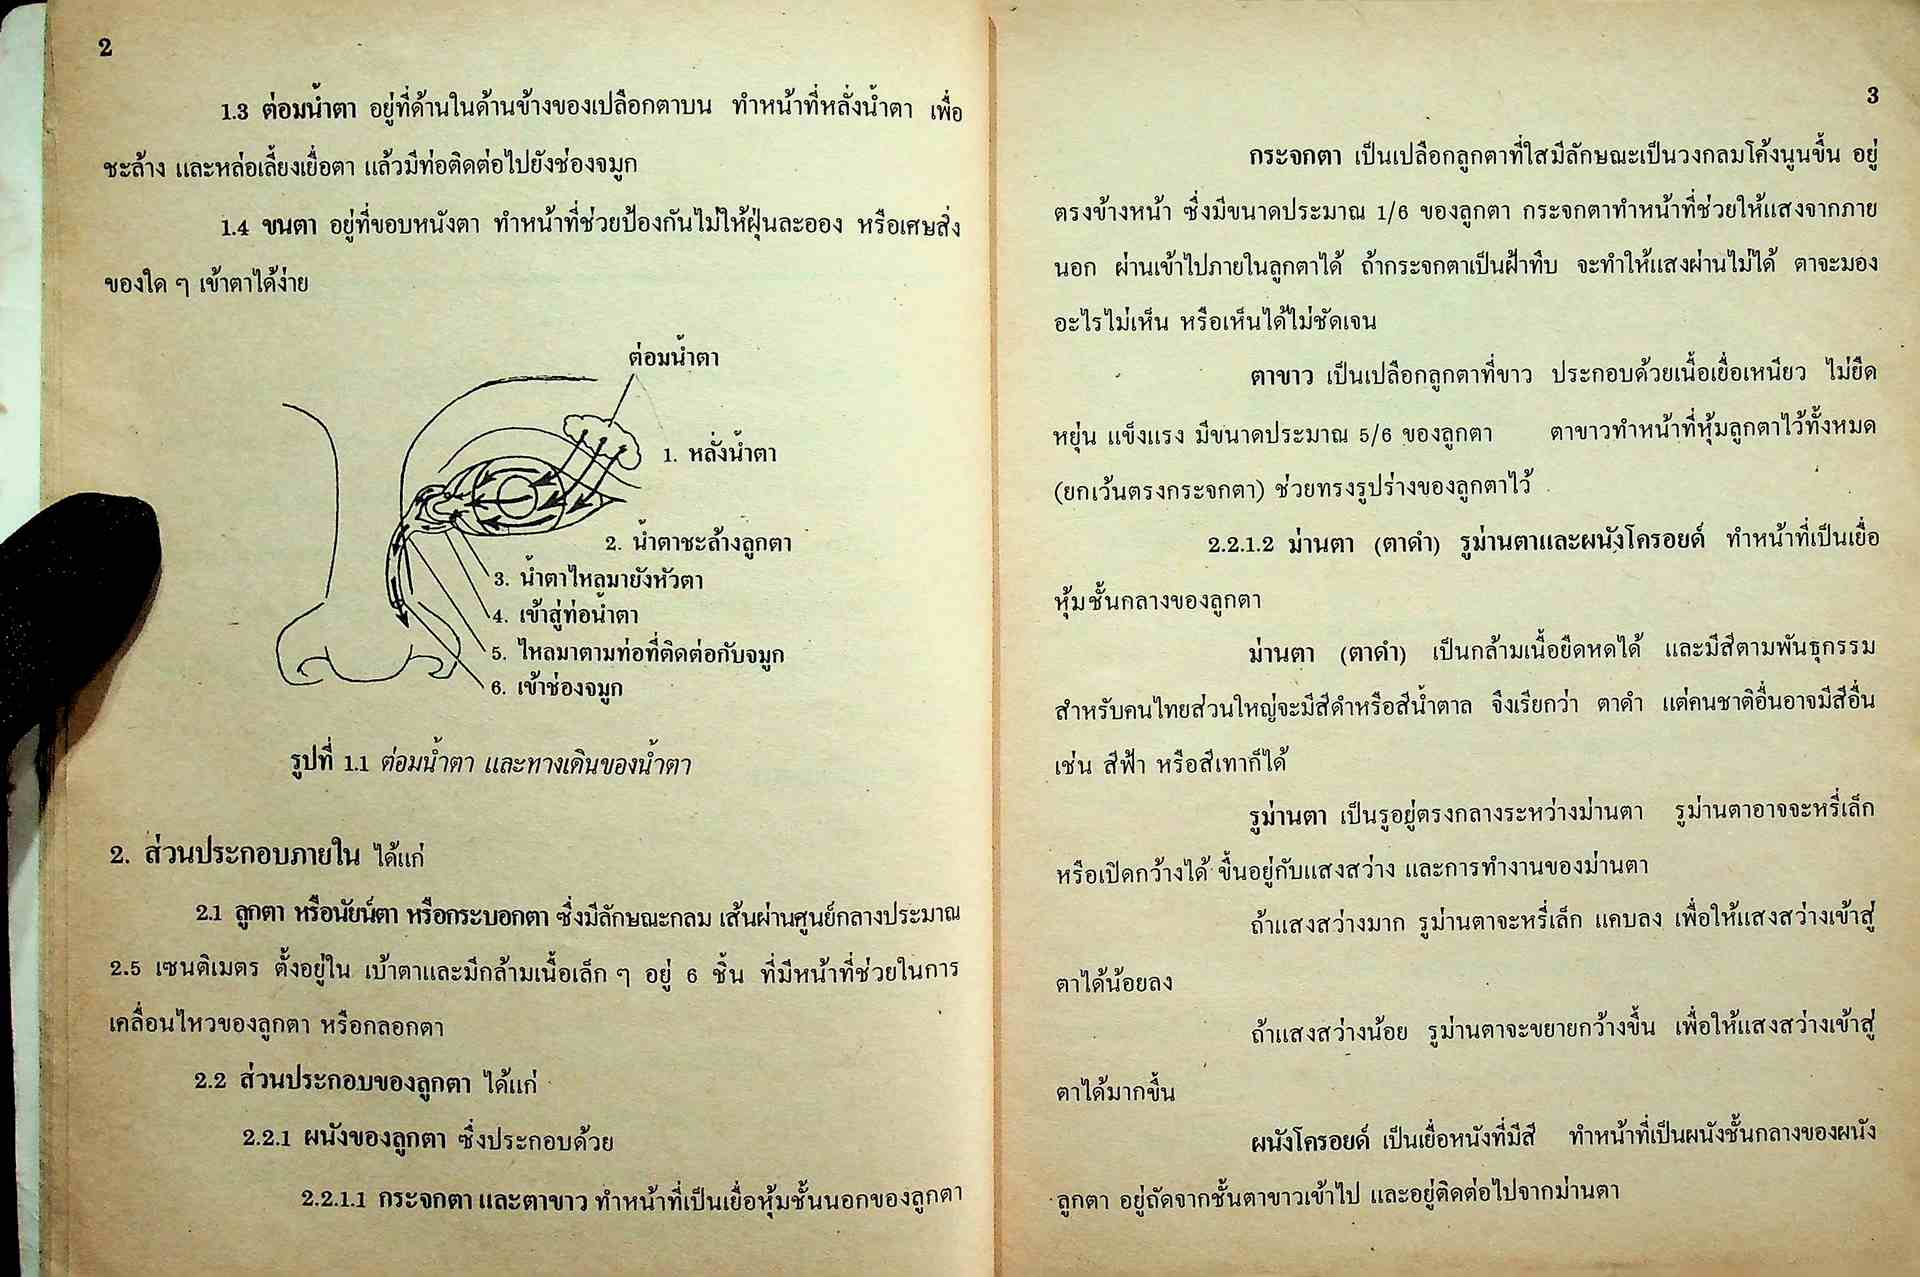 2
1.3 ต่อมน้ำตา อยู่ที่ด้านในด้านข้างของเปลือกตาบน ทำหน้าที่หลั่งน้ำตา เพื่อ
ชะล้าง และหล่อเลี้ยงเยื่อตา แล้วมีท่อติดต่อไปยังช่องจมูก
1.4 ขนตา อยู่ที่ขอบหนังตา ทำหน้าที่ช่วยป้องกันไม่ให้ฝุ่นละออง หรือเศษสิ่ง
ของใด ๆ เข้าตาได้ง่าย
ต่อมน้ำตา
1. หลั่งน้ำตา
2. น้ำตาชะล้างลูกตา
3. น้ำตาไหลมายังหัวตา
4. เข้าสู่ท่อน้ำตา
5. ไหลมาตามท่อที่ติดต่อกับจมูก
6. เข้าช่องจมูก
รูปที่ 1.1 ต่อมน้ำตา และทางเดินของน้ำตา
2. ส่วนประกอบภายใน ได้แก่
2.1 ลูกตา หรือนัยน์ตา หรือกระบอกตา ซึ่งมีลักษณะกลม เส้นผ่านศูนย์กลางประมาณ
2.5 เซนติเมตร ตั้งอยู่ใน เบ้าตาและมีกล้ามเนื้อเล็ก ๆ อยู่ 6 ชิ้น ที่มีหน้าที่ช่วยในการ
เคลื่อนไหวของลูกตา หรือกลอกตา
2.2 ส่วนประกอบของลูกตา ได้แก่
2.2.1 ผนังของลูกตา ซึ่งประกอบด้วย
2.2.1.1 กระจกตา และตาขาว ทำหน้าที่เป็นเยื่อหุ้มชั้นนอกของลูกตา
3
กระจกตา เป็นเปลือกลูกตาที่ใสมีลักษณะเป็นวงกลมโค้งนูนขึ้น อยู่
ตรงข้างหน้า ซึ่งมีขนาดประมาณ 1/6 ของลูกตา กระจกตาทำหน้าที่ช่วยให้แสงจากภาย
นอก ผ่านเข้าไปภายในลูกตาได้ ถ้ากระจกตาเป็นฝ้าทึบ จะทำให้แสงผ่านไม่ได้ ตาจะมอง
อะไรไม่เห็น หรือเห็นได้ไม่ชัดเจน
ตาขาว เป็นเปลือกลูกตาที่ขาว ประกอบด้วยเนื้อเยื่อเหนียว ไม่ยืด
หยุ่น แข็งแรง มีขนาดประมาณ 5/6 ของลูกตา ตาขาวทำหน้าที่หุ้มลูกตาไว้ทั้งหมด
(ยกเว้นตรงกระจกตา) ช่วยทรงรูปร่างของลูกตาไว้
2.2.1.2 ม่านตา (ตาดำ) รูม่านตาและผนังโครอยด์ ทำหน้าที่เป็นเยื่อ
หุ้มชั้นกลางของลูกตา
ม่านตา (ตาดำ) เป็นกล้ามเนื้อยืดหดได้ และมีสีตามพันธุกรรม
สำหรับคนไทยส่วนใหญ่จะมีสีดำหรือสีน้ำตาล จึงเรียกว่า ตาดำ แต่คนชาติอื่นอาจมีสีอื่น
เช่น สีฟ้า หรือสีเทาก็ได้
รูม่านตา เป็นรูอยู่ตรงกลางระหว่างม่านตา รูม่านตาอาจจะหรี่เล็ก
หรือเปิดกว้างได้ ขึ้นอยู่กับแสงสว่าง และการทำงานของม่านตา
ถ้าแสงสว่างมาก รูม่านตาจะหรี่เล็ก แคบลง เพื่อให้แสงสว่างเข้าสู่
ตาได้น้อยลง
ถ้าแสงสว่างน้อย รูม่านตาจะขยายกว้างขึ้น เพื่อให้แสงสว่างเข้าสู่
ตาได้มากขึ้น
ผนังโครอยด์ เป็นเยื่อหนังที่มีสี ทำหน้าที่เป็นผนังชั้นกลางของผนัง
ลูกตา อยู่ถัดจากชั้นตาขาวเข้าไป และอยู่ติดต่อไปจากม่านตา